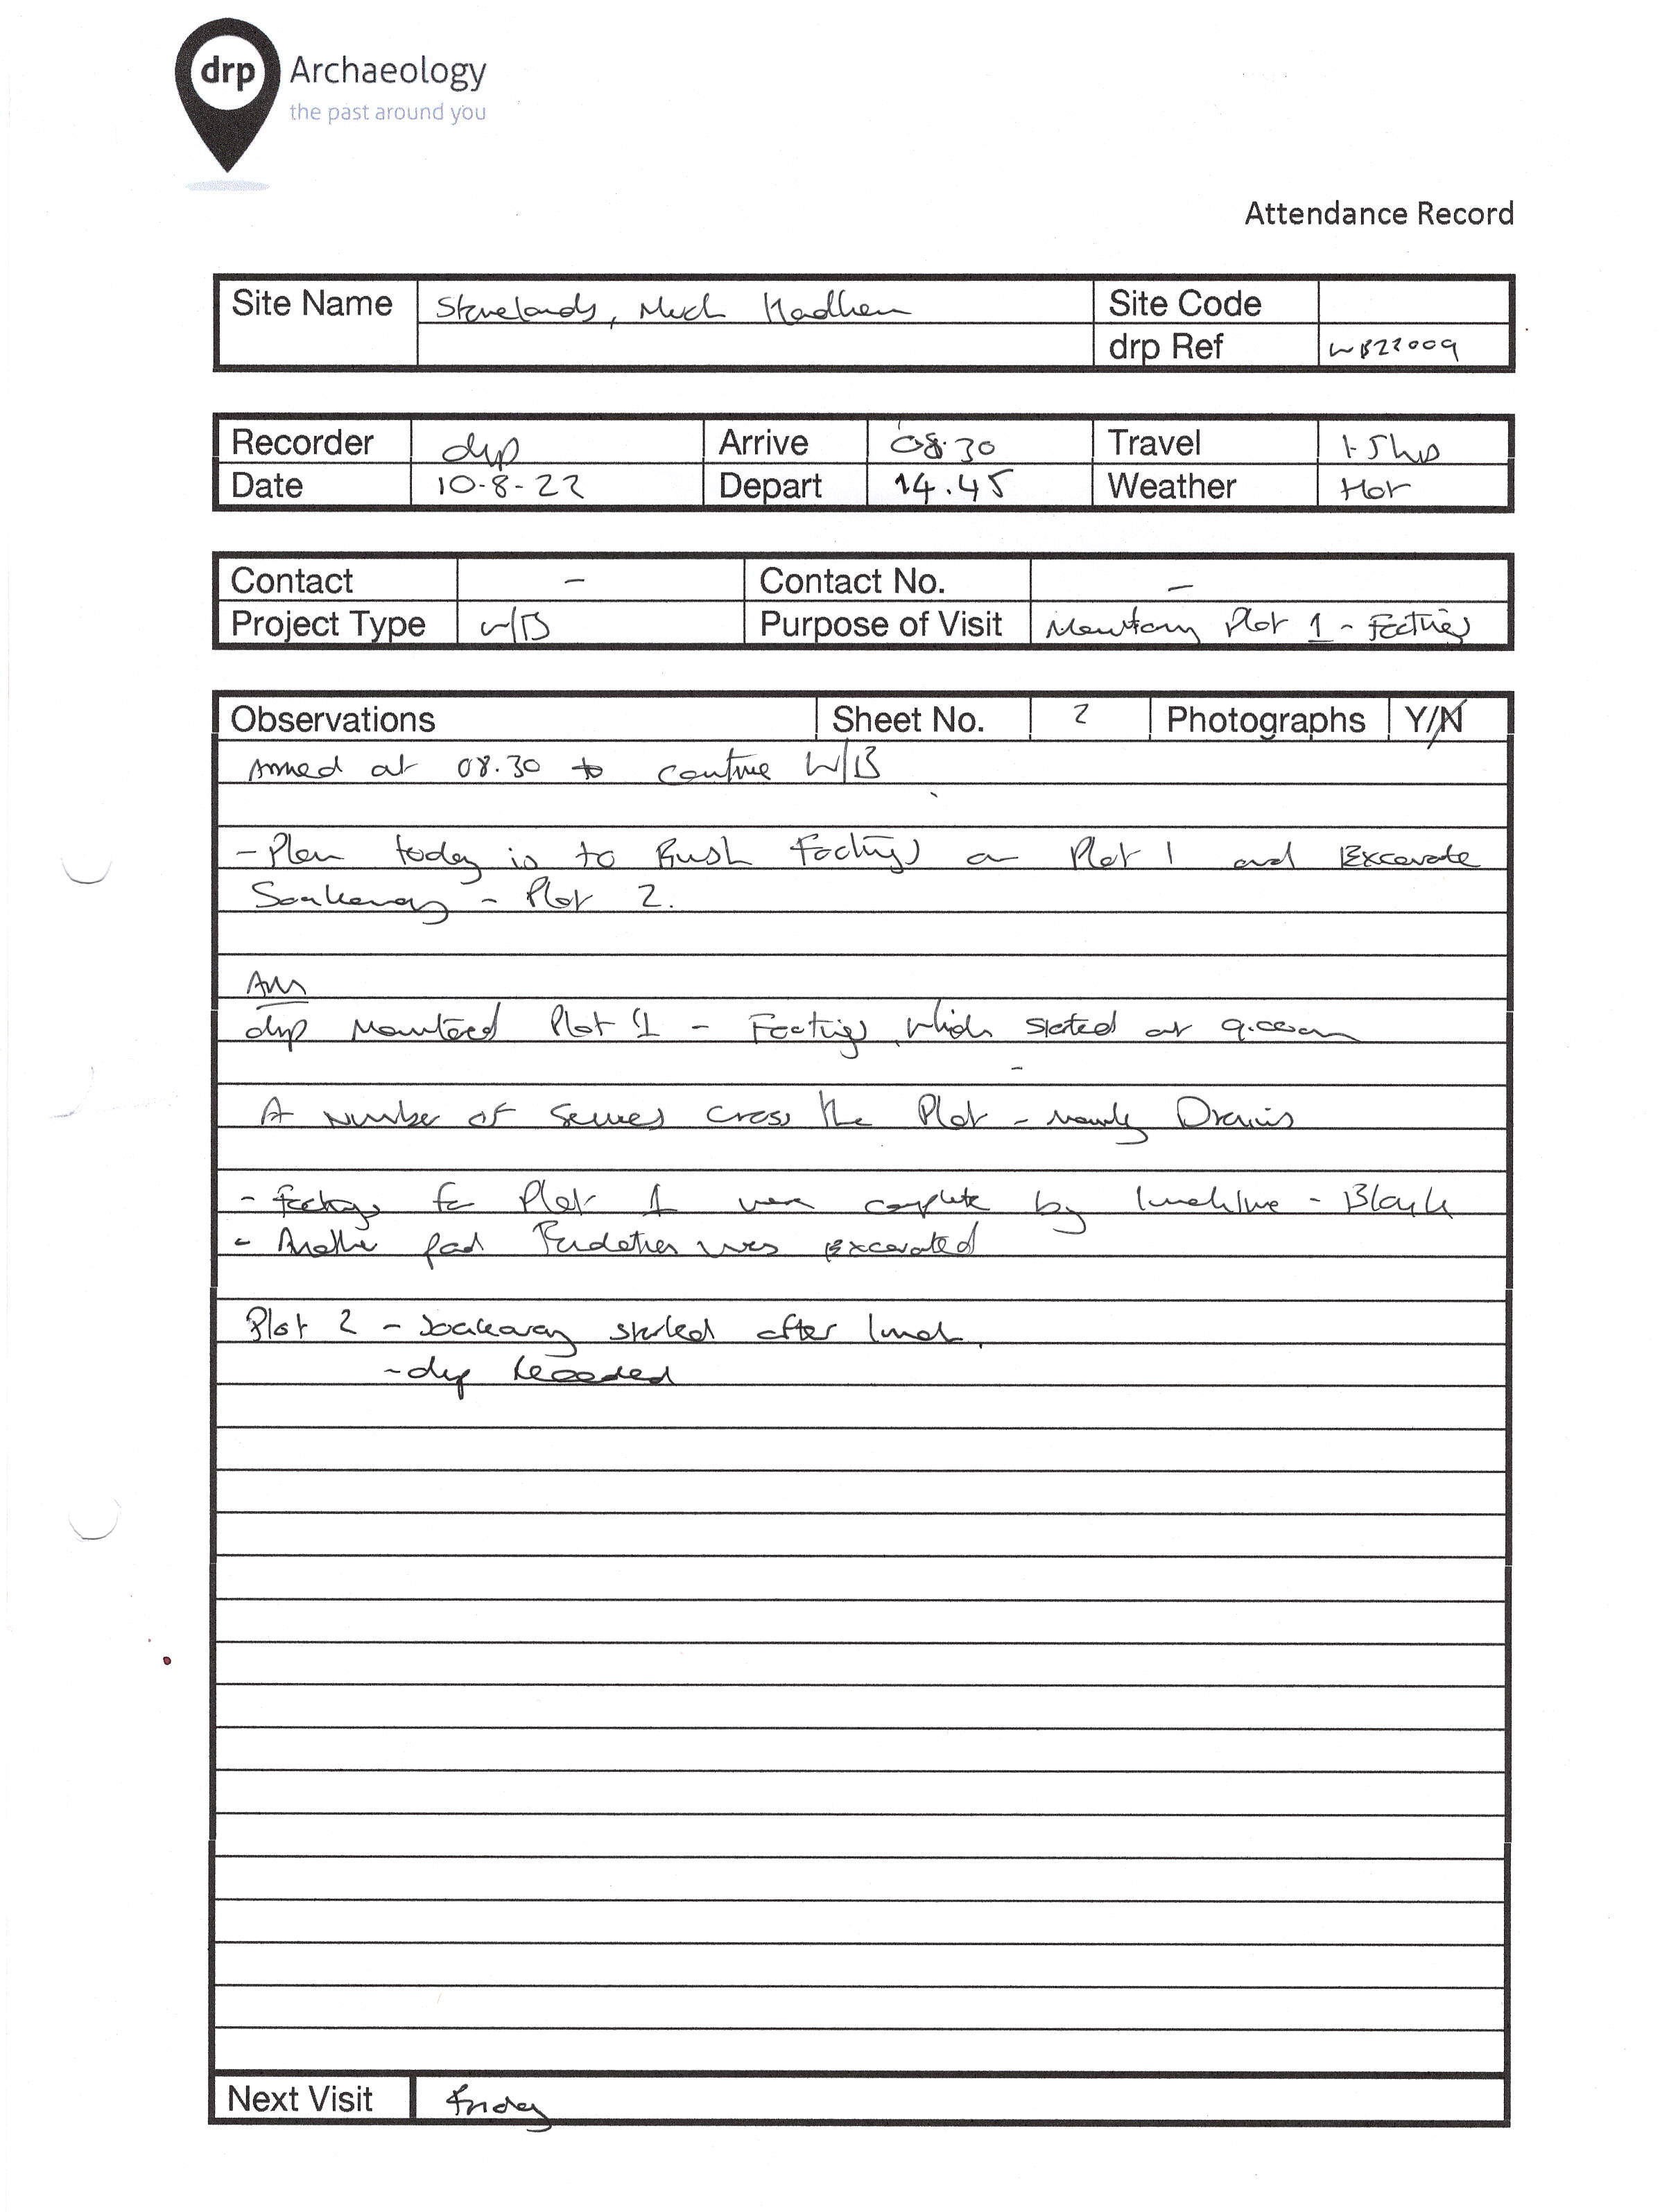 drp Archaeology
the past around you
Attendance Record
Site Name Stonelands, Much Hadham Site Code
drp Ref WB22009
Recorder drp Arrive 08.30 Travel 1.5hrs
Date 10-8-22 Depart 14.45 Weather Hot
Contact - Contact No. -
Project Type W/B Purpose of Visit Monitoring Plot 1 - Footings
Observations Sheet No. 2 Photographs Y/N
Arrived at 08.30 to continue W/B
- Plan today is to Finish Footings on Plot 1 and Excavate
Soakaway - Plot 2.
Am
drp Monitored Plot 1 - Footings which started at 9.00am
A number of services cross the Plot - mainly Drains
- Footings for Plot 1 were complete by lunchtime - Blank
- Another pad Foundation was excavated
Plot 2 - Soakaway started after lunch.
- drp recorded
Next Visit Friday